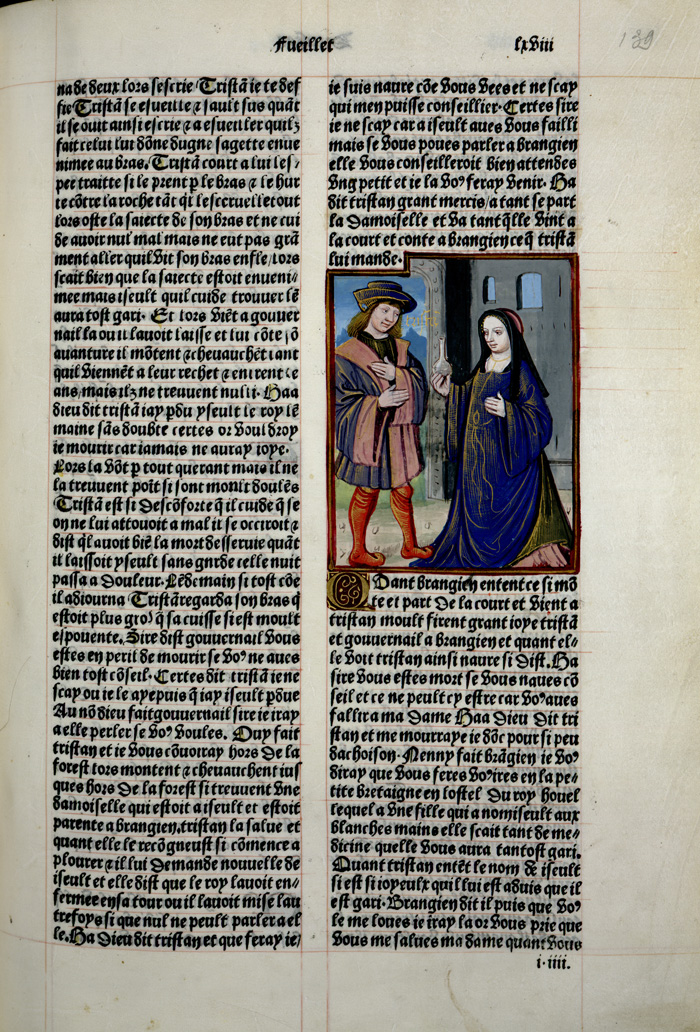 Fueillet lxviii
139
na de deux lors sescrie Tristã ie te def
fie Tristã se esueille ⁊ sault sus quãt
il se ouit ainsi escrie ⁊ a esueiller quilz
fait celui lui dõne dugne sagette enue
nimee au bras. Tristã court a lui les/
pee traitte si le prent p le bras ⁊ le hur
te cõtre la roche tãt q̃ le ceruelle tout
lors oste la saiecte de son bras et ne cui
de auoir nul mal mais ne eut pas grã
ment aller quil vit son bras enfle/lors
scait bien que la saiecte estoit enueni/
mee mais iseult quil cuide trouuer lẽ
aura tost gari. Et lors viẽt a gouuer
nail la ou il lauoit laisse et lui cõte sõ
auanture il mõtent ⁊ cheuauchẽt tant
quil viennẽt a leur rechet ⁊ entrent ce
ans/mais ilz ne treuuent nulli. Haa
dieu dit tristã iay pdu yseult le roy lẽ
maine sãs doubte certes or voul droy
ie mourir car iamais ne auray ioye.
Lors la võt p tout querant mais il ne
la treuuent poĩt si sont moult doulẽs
Tristã est si descõforte q̃ il cuide q̃ se
on ne lui attouoit a mal il se occiroit ⁊
dist q̃l auoit biẽ la mort desseruie quãt
il laissoit yseult sans garde celle nuit
passa a douleur. Lẽdemain si tost cõe
il adiourna Tristã regarda son bras q̃
estoit plus gros q̃ sa cuisse si est moult
espouente. Sire dist gouuernail vous
estes en peril de mourir se vo⁹ ne aues
bien tost cõseil. Certes dit tristã ie ne
scay ou ie le aye puis q̃ iay iseult pdue
Au nõ dieu fait gouuernail sire ie iray
a elle perler se vo⁹ voules. Ouy fait
tristan et ie vous cõuoiray hors de la
forest lors montent ⁊ cheuauchent ius
ques hors de la forest si treuuent vne
damoiselle qui estoit a iseult et estoit
parente a brangien. tristan la salue et
quant elle le recõgneust si cõmence a
plourer ⁊ il lui demande nouuelle de
iseult et elle dist que le roy lauoit en/
fermee en sa tour ou il lauoit mise lau
trefoys si que nul ne peult parler a el
le. Ha dieu dit tristan et que feray ie/
ie suis naure cõe vous vees et ne scay
qui men puisse conseillier. Certes sire
ie ne scay car a iseult aues vous failli
mais se vous poues parler a brangien
elle vous conseilleroit bien attendes
vng petit et ie la vo⁹ feray venir. Ha
dit tristan grant mercis/a tant se part
la damoiselle et va tant q̃lle vint a
la court et conte a brangien ce q̃ tristã
lui mande.
Quant brangien entent ce si mõ
te et part de la court et vient a
tristan moult firent grant ioye tristã
et gouuernail a brangien et quant el/
le voit tristan ainsi naure si dist. Ha
sire vous estes mort se vous naues cõ
seil et ce ne peult cy estre car vo⁹ aues
falli a ma dame Haa dieu dit tri
stan et me mourraye ie dõc pour si peu
dachoison. Nenny fait brãgien ie vo⁹
diray que vous feres vo⁹ ires en la pe/
tite bretaigne en lostel du roy houel
lequel a vne fille qui a nom iseult aux
blanches mains elle scait tant de me/
dicine quelle vous aura tantost gari.
Quant tristan entẽt le nom de iseult
si est si ioyeulx quil lui est aduis que il
est gari. Brangien dit il puis que vo⁹
le me loues ie iray la or vous prie que
vous me salues ma dame quant vous
i.iiii.